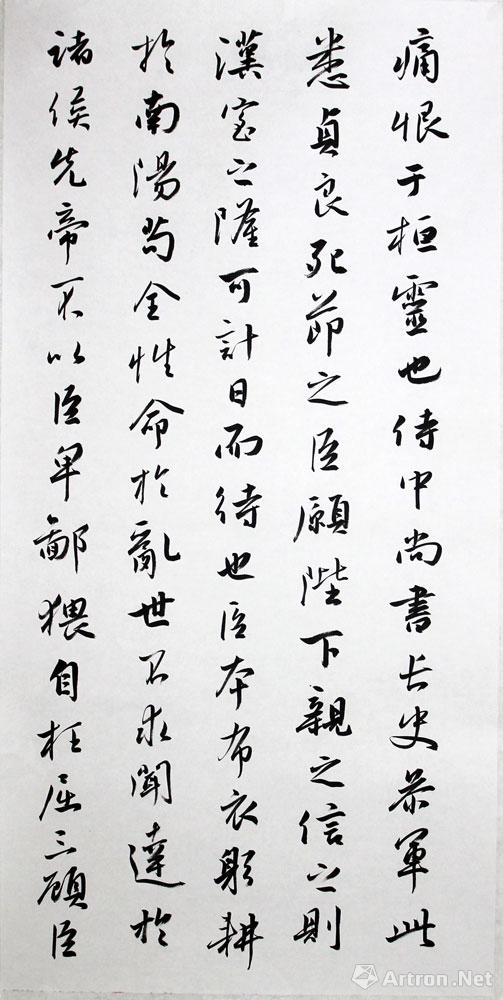 痛恨于桓靈也侍中尚書長史參軍此
悉貞良死節之臣願陛下親之信之則
漢室之隆可計日而待也臣本布衣躬耕
於南陽苟全性命於亂世不求聞達於
諸侯先帝不以臣卑鄙猥自枉屈三顧臣
Artron.Net